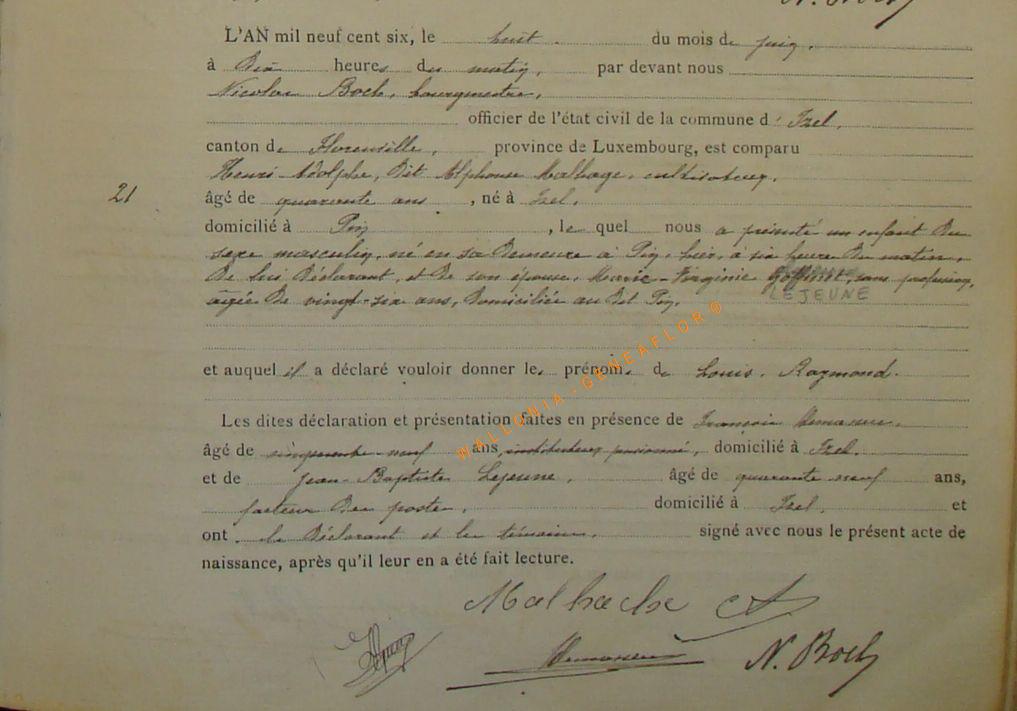 N. Boch
L'AN mil neuf cent six, le huit du mois de juin,
à dix heures du matin, par devant nous
Nicolas Boch, bourgmestre,
officier de l'état civil de la commune d' Izel,
canton de Florenville, province de Luxembourg, est comparu
Henri-Adolphe, dit Alphonse Malhage, cultivateur,
21
âgé de quarante ans, né à Izel,
domicilié à Pin, le quel nous a présenté un enfant du
sexe masculin, né en sa demeure à Pin, hier, à six heures du matin,
de lui déclarant, et de son épouse, Marie-Virginie Goffinet, sans profession,
LEJEUNE
âgée de vingt-six ans, domiciliée au dit Pin,
et auquel il a déclaré vouloir donner les prénoms de Louis, Raymond.
Les dites déclaration et présentation faites en présence de François
âgé de cinquante neuf ans, instituteur pensionné, domicilié à Izel,
et de Jean-Baptiste Lejeune, âgé de quarante neuf ans,
facteur des postes, domicilié à Izel, et
ont le déclarant et les témoins, signé avec nous le présent acte de
naissance, après qu'il leur en a été fait lecture.
Malhache A
N. Boch
WALLONIA-GENEAFLOR®